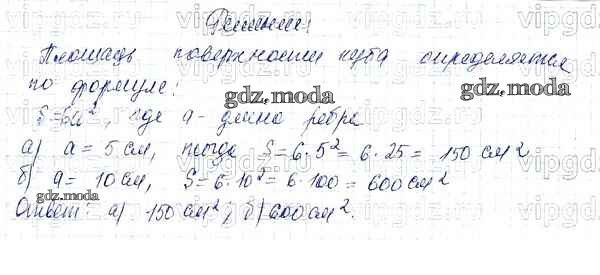 Решение:
Площадь поверхности куба определяется
по формуле:
gdz.moda gdz.moda
S=6a², где a - длина ребра
а) a = 5 см, тогда S = 6·5² = 6·25 = 150 см²
б) a = 10 см, S = 6·10² = 6·100 = 600 см²
gdz.moda
Ответ: а) 150 см²; б) 600 см².